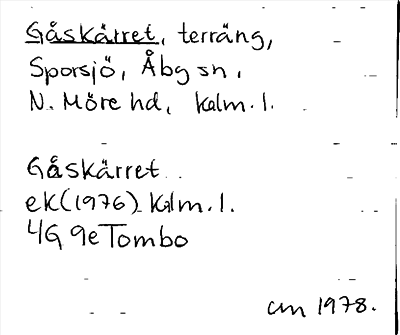 Gåskärret, terräng,
Sporsjö, Åby sn,
N. Möre hd, kalm. l.
Gåskärret
ek (1976) Kalm. l.
4G 9e Tombo
cm 1978.